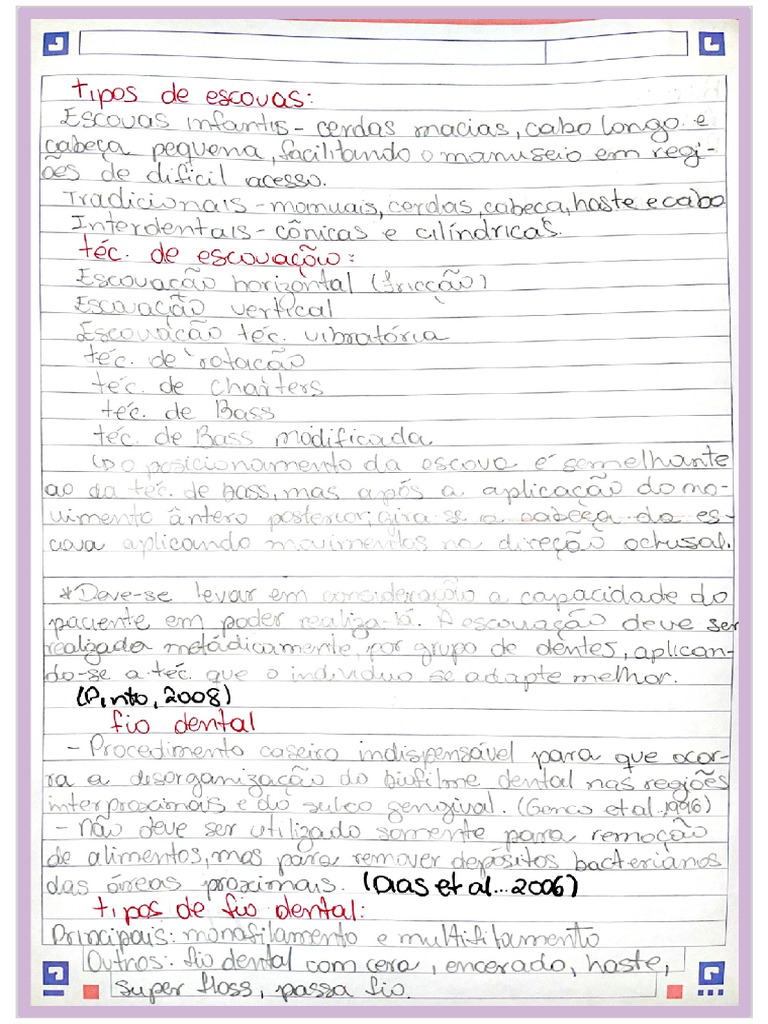 tipos de escovas:
Escovas infantis - cerdas macias, cabo longo e
cabeça pequena, facilitando o manuseio em regi-
ões de dificil acesso.
Tradicionais - manuais, cerdas, cabeça, haste e cabo
Interdentais - cônicas e cilíndricas.
téc. de escovação:
Escovação horizontal (fricção)
Escovação vertical
Escovação téc. vibratória
téc. de rotação
téc. de charters
téc. de Bass
téc. de Bass modificada
↳ o posicionamento da escova é semelhante
ao da téc. de bass, mas após a aplicação do mo-
vimento ântero posterior, gira-se a cabeça da es-
cova aplicando movimentos na direção oclusal.
*Deve-se levar em consideração a capacidade do
paciente em poder realiza-lá. A escovação deve ser
realizada metádicamente, por grupo de dentes, aplican-
do-se a téc. que o individuo se adapte melhor.
(Pinto, 2008)
fio dental
- Procedimento caseiro indispensável para que ocor-
ra a desorganização do biofilme dental nas regiões
interproximais e do sulco gengival. (Genco et al..1996)
- Não deve ser utilizado somente para remoção
de alimentos, mas para remover depósitos bacterianos
das áreas proximais. (Dias et al... 2006)
tipos de fio dental:
Principais: monofilamento e multifilamento
Outros: fio dental com cera, encerado, haste,
super floss, passa fio.